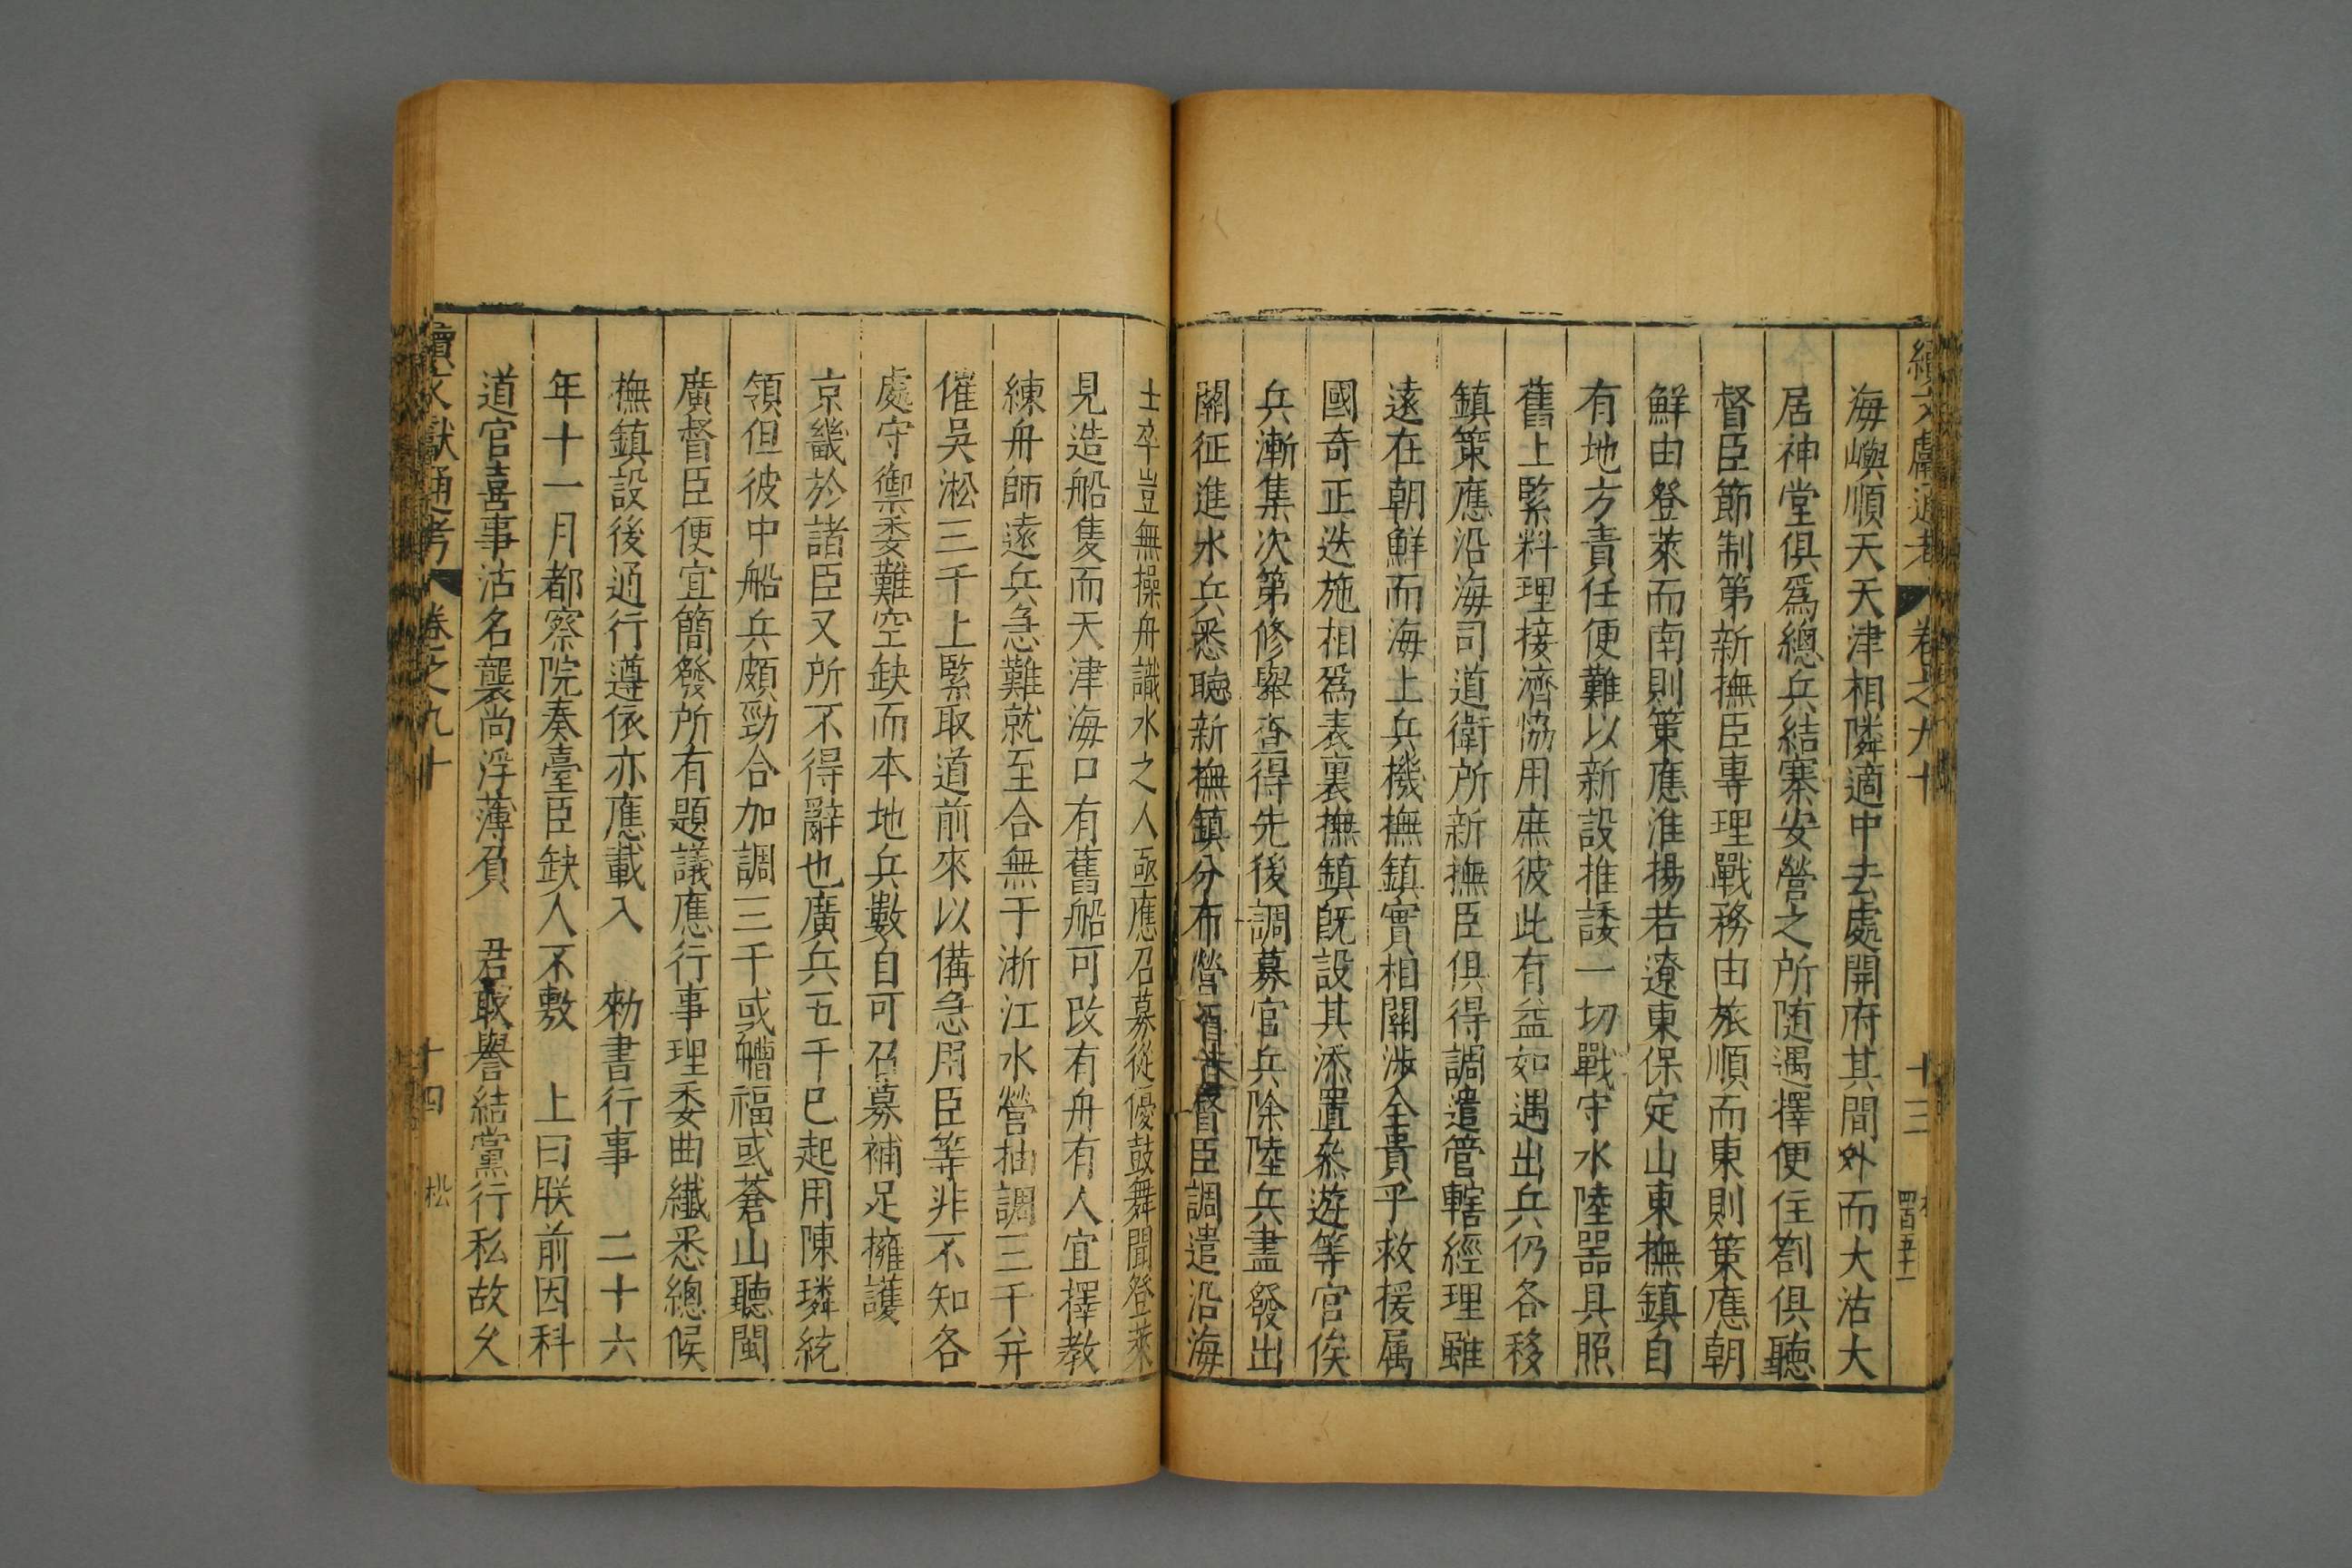 續文獻通考 卷之九十 十三 四百五十一
海嶼順天天津相隣適中去處開府其間外而大沽大
居神堂俱爲總兵結寨安營之所随遇擇便住劄俱聽
督臣節制第新撫臣專理戰務由旅順而東則策應朝
鮮由登萊而南則策應淮揚若遼東保定山東撫鎮自
有地方責任便難以新設推諉一切戰守水陸器具照
舊上緊料理接濟協用庶彼此有益如遇出兵仍各移
鎮策應沿海司道衛所新撫臣俱得調遣管轄經理雖
遠在朝鮮而海上兵機撫鎮實相關渉全貴乎救援属
國奇正迭施相爲表裏撫鎮旣設其添置叅遊等官俟
兵漸集次第修舉查得先後調募官兵除陸兵盡發出
關征進水兵悉聽新撫鎮分布營 督臣調遣沿海
士卒豈無操舟識水之人亟應召募從優鼓舞聞登萊
見造船隻而天津海口有舊船可改有舟有人宜擇教
練舟師遠兵急難就至合無于浙江水營抽調三千并
催吳淞三千上緊取道前來以備急用臣等非不知各
處守禦委難空缺而本地兵數自可召募補足擁護
京畿於諸臣又所不得辭也廣兵五千已起用陳璘統
領但彼中船兵頗勁合加調三千或艚福或蒼山聽閩
廣督臣便宜簡發所有題議應行事理委曲纖悉總候
撫鎮設後通行遵依亦應載入 勑書行事 二十六
年十一月都察院奏臺臣缺人不敷 上曰朕前因科
道官喜事沽名襲尚浮薄負 君敢譽結黨行私故久
續文獻通考 卷之九十 十四 松